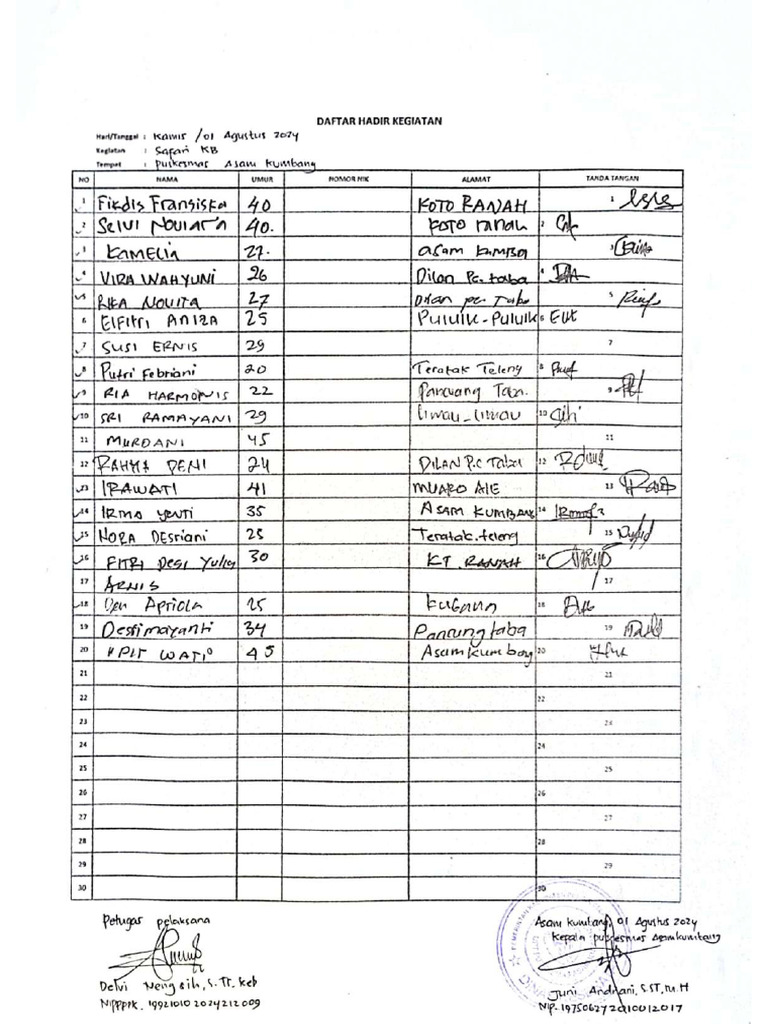 DAFTAR HADIR KEGIATAN
Hari/Tanggal : Kamis /01 Agustus 2024
Kegiatan : Safari KB
Tempat : Puskesmas Asam Kumbang
NO NAMA UMUR NOMOR NIK ALAMAT TANDA TANGAN
1 Fikdis Fransiska 40 KOTO RANAH 1
2 Selvi Noviara 40. KOTO ranah 2
3 KAMELIA 27. asam 3
4 VIRA WAHYUNI 26 Dilan Pc. taba 4
5 RIKA NOVITA 27 Dilan pc. Taba 5
6 ElFitri ANIZA 25 Puluik-Puluik 6
7 SUSI ERNIS 29 7
8 Putri Febriani 20 Teratak Teleng 8
9 RIA HARMONIS 22 Pancuang Taba. 9
10 SRI RAMAYANI 29 Limau-Limau 10
11 MURDANI 45 11
12 RAHMA DENI 24 DILAN P.C Taba 12
13 IRAWATI 41 MUARO AIE 13
14 IRMA YENTI 35 ASAM KUMBANG 14
15 NORA DESriani 25 Teratak.teleng 15
16 FITRI Desi Yulia 30 KT. RANAH 16
17 ARNIS 17
18 Apriola 25 18
19 Desfimayanti 34 Pancung taba 19
20 "PIT WATI" 45 Asam kumbang 20
21 21
22 22
23 23
24 24
25 25
26 26
27 27
28 28
29 29
30 30
Petugas pelaksana
Asam Kumbang, 01 Agustus 2024
Kepala puskesmas Asamkumbang
Delvi Nengsih, S.Tr. Keb
NIPPPK. 19921010 2024212009
Juni Andriani, S.ST, M.H
Nip. 197506272010012017